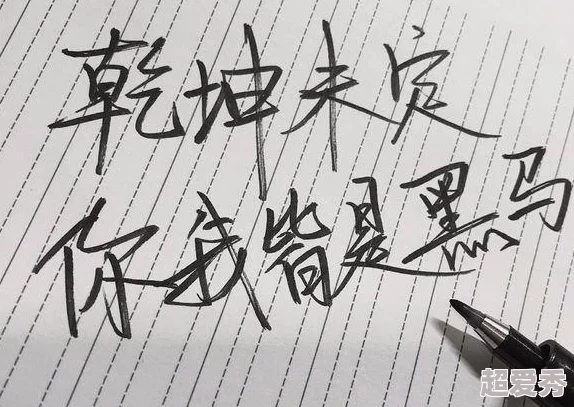 乾坤未定
你我皆是黑马
超爱秀